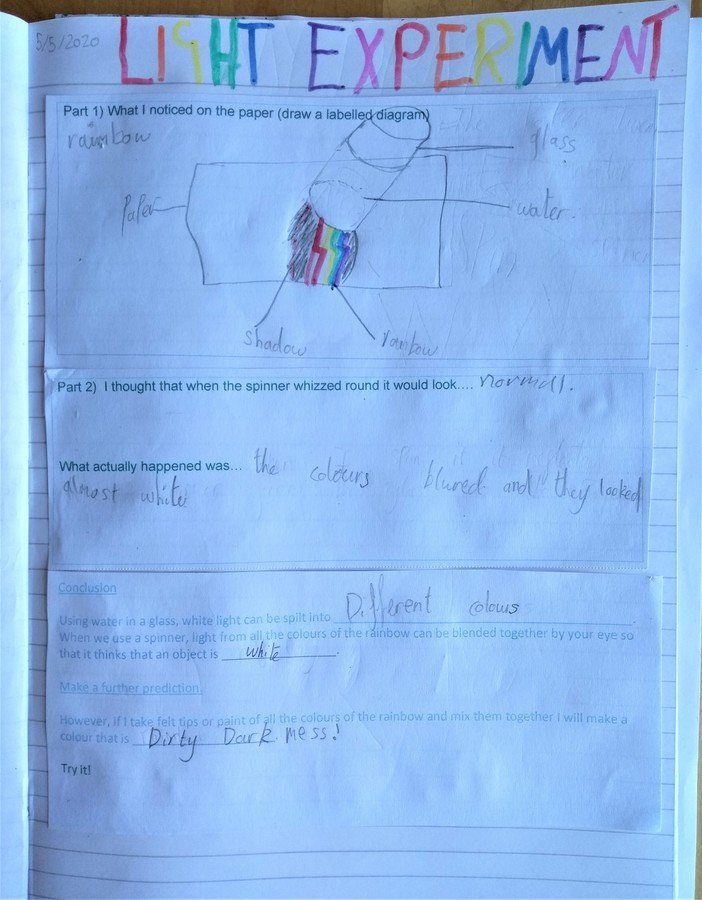 5/5/2020 LIGHT EXPERIMENT
Part 1) What I noticed on the paper (draw a labelled diagram)
rainbow
glass
Paper
water.
shadow
rainbow
Part 2)  I thought that when the spinner whizzed round it would look.... normal.
What actually happened was... the colours blured and they looked
almost white
Conclusion
Using water in a glass, white light can be spilt into Different colours.
When we use a spinner, light from all the colours of the rainbow can be blended together by your eye so
that it thinks that an object is white.
Make a further prediction.
However, if I take felt tips or paint of all the colours of the rainbow and mix them together I will make a
colour that is Dirty Dark mess!
Try it!